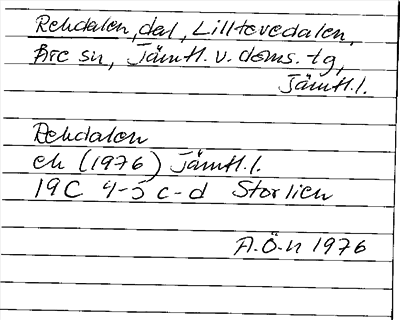 Rekdalen, dal, Lilltevedalen,
Åre sn, Jämtl. v. doms. tg,
Jämtl. l.
Rekdalen
ek (1976) Jämtl. l.
19C 4-5 c-d Storlien
A.Ö-n 1976